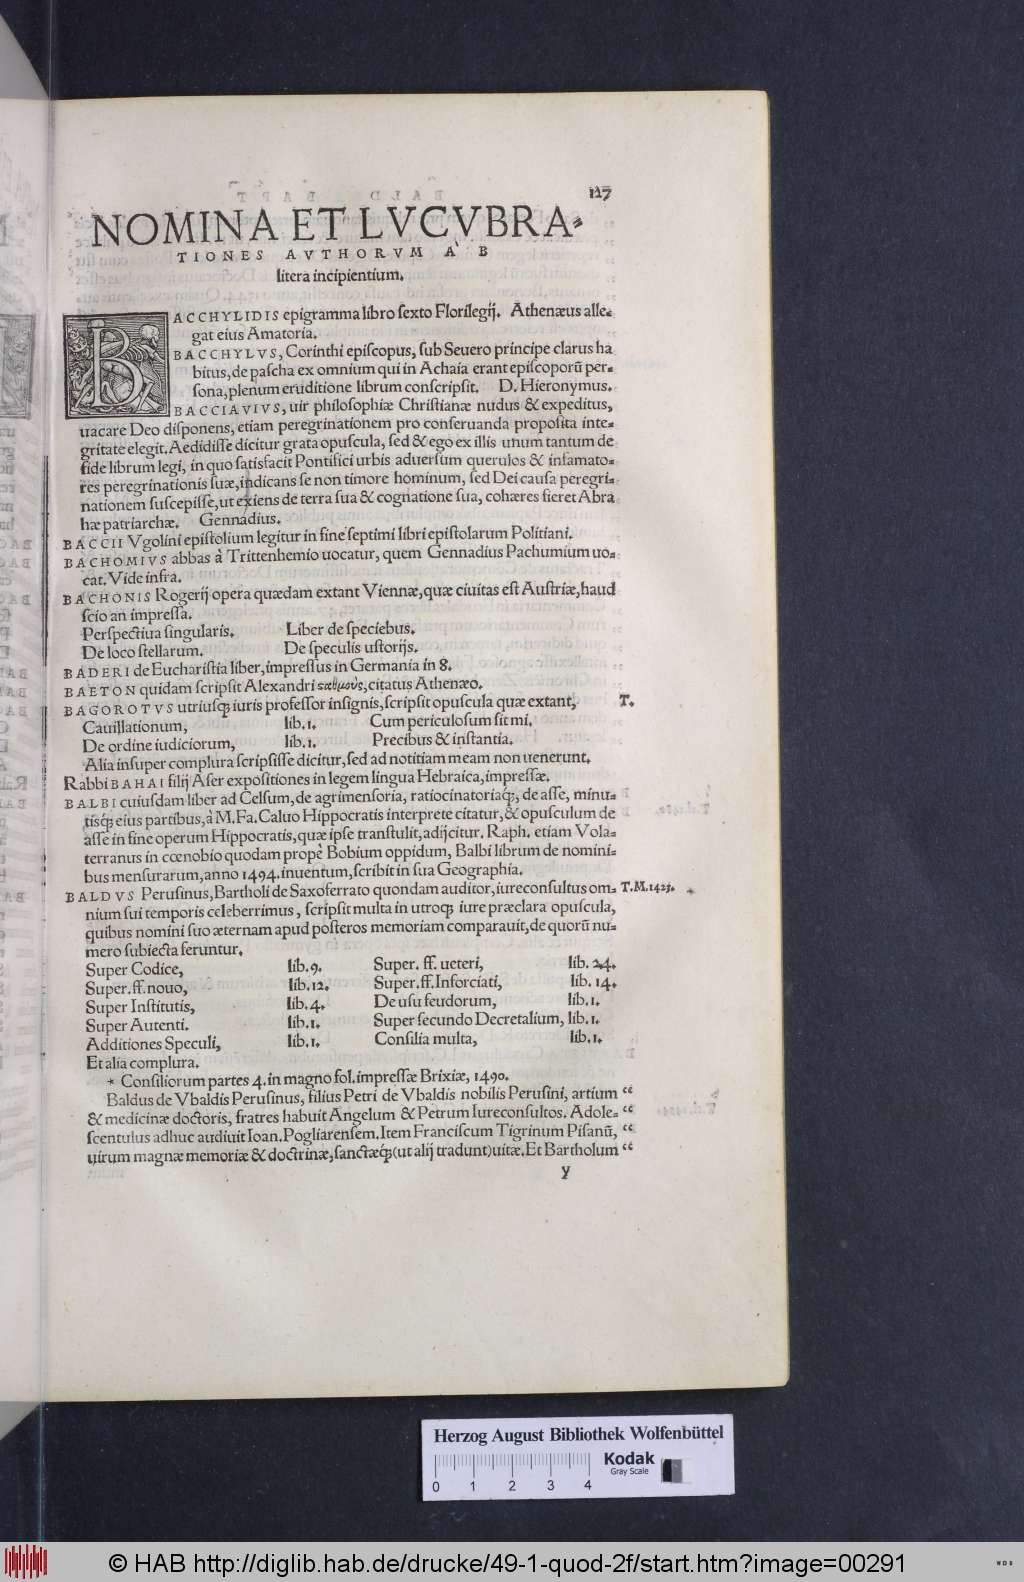 127
NOMINA ET LVCVBRA-
TIONES AVTHORVM A' B
litera incipientium.
BACCHYLIDIS epigramma libro sexto Florilegij. Athenæus alle-
gat eius Amatoria.
BACCHYLVS, Corinthi episcopus, sub Seuero principe clarus ha
bitus, de pascha ex omnium qui in Achaia erant episcoporũ per-
sona, plenum eruditione librum conscripsit. D. Hieronymus.
BACCIAVIVS, uir philosophiæ Christianæ nudus & expeditus,
uacare Deo disponens, etiam peregrinationem pro conseruanda proposita inte-
gritate elegit. Aedidisse dicitur grata opuscula, sed & ego ex illis unum tantum de
fide librum legi, in quo satisfacit Pontifici urbis aduersum querulos & infamato-
res peregrinationis suæ, indicans se non timore hominum, sed Dei causa peregri-
nationem suscepisse, ut exiens de terra sua & cognatione sua, cohæres fieret Abra
hæ patriarchæ. Gennadius.
BACCII Vgolini epistolium legitur in fine septimi libri epistolarum Politiani.
BACHOMIVS abbas à Trittenhemio uocatur, quem Gennadius Pachumium uo-
cat. Vide infra.
BACHONIS Rogerij opera quædam extant Viennæ, quæ ciuitas est Austriæ, haud
scio an impressa.
Perspectiua singularis. Liber de speciebus.
De loco stellarum. De speculis ustorijs.
BADERI de Eucharistia liber, impressus in Germania in 8.
BAETON quidam scripsit Alexandri σαθμοὺς, citatus Athenæo.
BAGOROTVS utriusq; iuris professor insignis, scripsit opuscula quæ extant, T.
Cauillationum, lib. 1. Cum periculosum sit mi.
De ordine iudiciorum, lib. 1. Precibus & instantia.
Alia insuper complura scripsisse dicitur, sed ad notitiam meam non uenerunt.
Rabbi BAHAI filij Aser expositiones in legem lingua Hebraica, impressæ.
BALBI cuiusdam liber ad Celsum, de agrimensoria, ratiocinatoriaq;, de asse, minu-
tisq; eius partibus, à M. Fa. Caluo Hippocratis interprete citatur, & opusculum de
asse in fine operum Hippocratis, quæ ipse transtulit, adijcitur. Raph. etiam Vola-
terranus in cœnobio quodam propè Bobium oppidum, Balbi librum de nomini-
bus mensurarum, anno 1494. inuentum, scribit in sua Geographia.
BALDVS Perusinus, Bartholi de Saxoferrato quondam auditor, iureconsultus om- T. M. 1425.
nium sui temporis celeberrimus, scripsit multa in utroq; iure præclara opuscula,
quibus nomini suo æternam apud posteros memoriam comparauit, de quorũ nu-
mero subiecta feruntur.
Super Codice, lib. 9. Super. ff. ueteri, lib. 24.
Super. ff. nouo, lib. 12. Super. ff. Inforciati, lib. 14.
Super Institutis, lib. 4. De usu feudorum, lib. 1.
Super Autenti. lib. 1. Super secundo Decretalium, lib. 1.
Additiones Speculi, lib. 1. Consilia multa, lib. 1.
Et alia complura.
* Consiliorum partes 4. in magno fol. impressæ Brixiæ, 1490.
Baldus de Vbaldis Perusinus, filius Petri de Vbaldis nobilis Perusini, artium “
& medicinæ doctoris, fratres habuit Angelum & Petrum Iureconsultos. Adole- “
scentulus adhuc audiuit Ioan. Pogliarensem. Item Franciscum Tigrinum Pisanũ, “
uirum magnæ memoriæ & doctrinæ, sanctæq; (ut alij tradunt) uitæ. Et Bartholum “
y
Herzog August Bibliothek Wolfenbüttel
Kodak
Gray Scale
0 1 2 3 4
© HAB http://diglib.hab.de/drucke/49-1-quod-2f/start.htm?image=00291